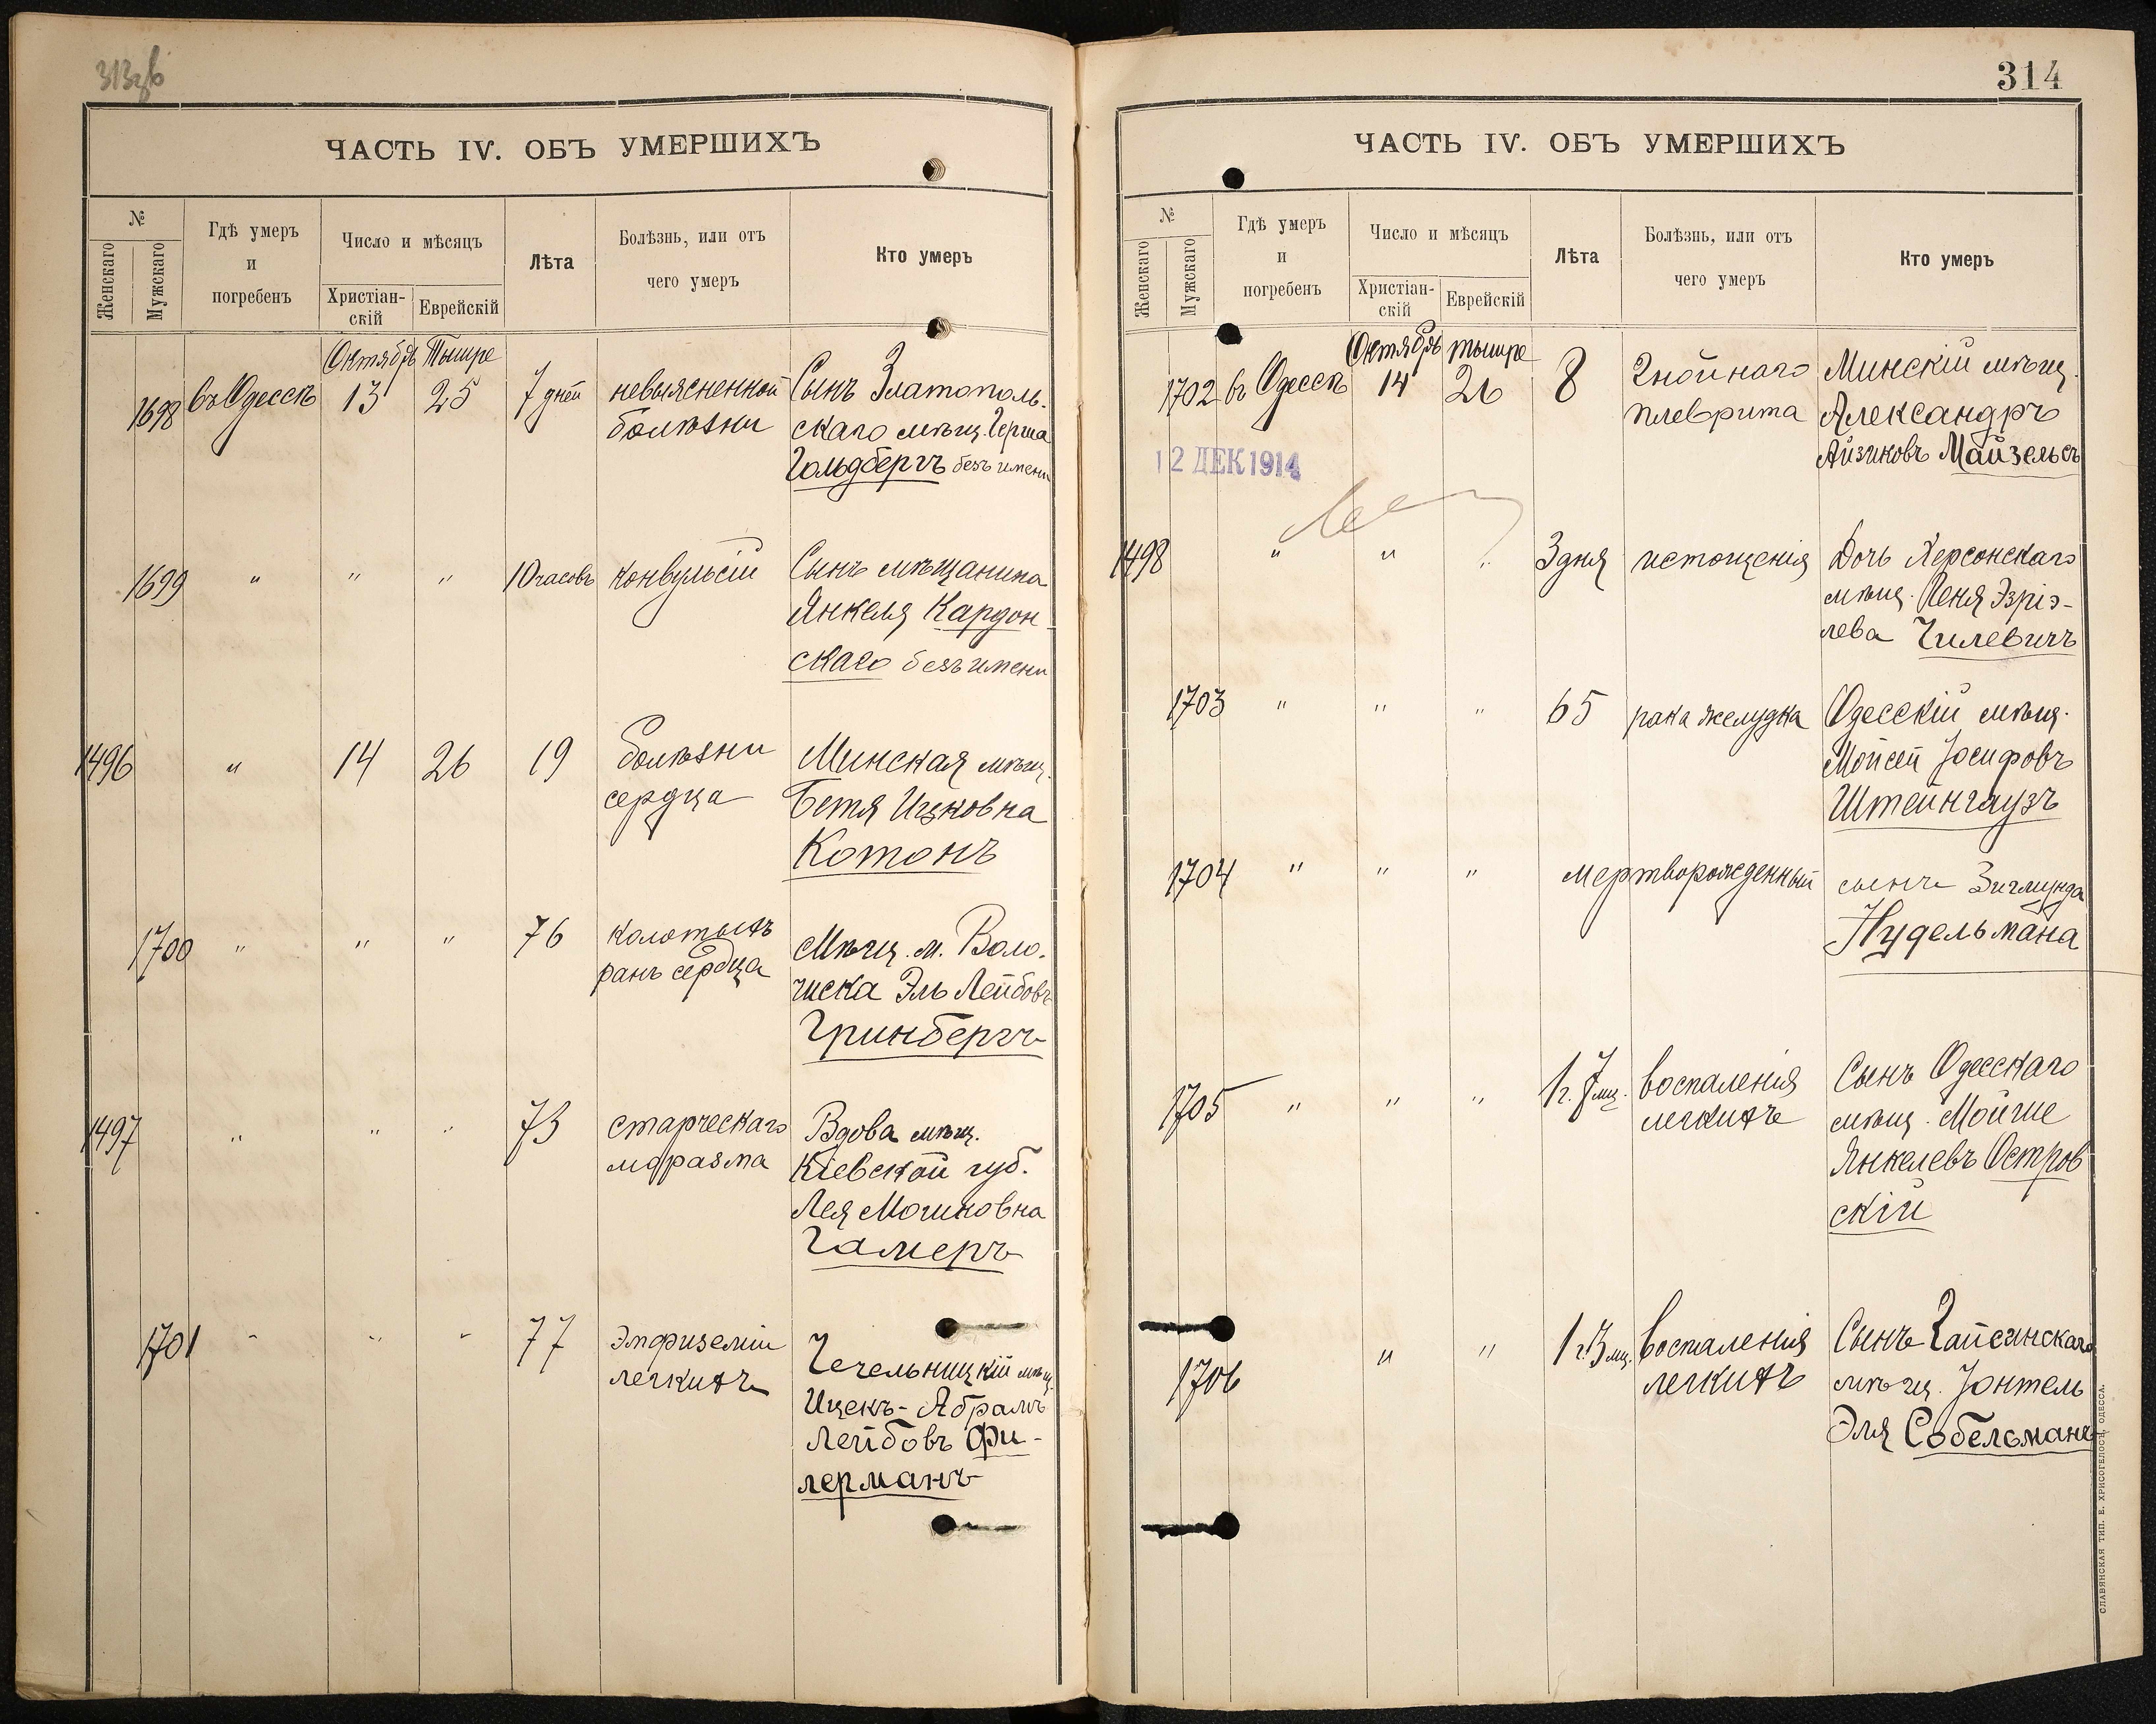 313об
ЧАСТЬ IV. ОБЪ УМЕРШИХЪ
№
Женскаго
Мужскаго
Гдѣ умеръ
и
погребенъ
Число и мѣсяцъ
Христіан-
скій
Еврейскій
Лѣта
Болѣзнь, или отъ
чего умеръ
Кто умеръ
Октябрь Тышре
1698 въ Одессѣ 13 25 7 дней невыясненной Сынъ Златополь-
болѣзни скаго мѣщ. Герша
Гольдбергъ безъ имени
1699 " " " 10 часовъ конвульсіи Сынъ мѣщанина
Янкеля Кардон-
скаго безъ имени
1496 " 14 26 19 болѣзни Минская мѣщ.
сердца Бетя Ицковна
Котонъ
1700 " " " 76 колотыхъ Мѣщ. м. Воло-
ранъ сердца чиска Эль Лейбовъ
Гринбергъ
1497 " " " 73 старческаго Вдова мѣщ.
маразма Кіевской губ.
Лея Мошковна
Гамеръ
1701 " " " 77 Эмфиземіи Чечельницкій мѣщ.
легкихъ Ицекъ-Абрамъ
Лейбовъ Фи-
лерманъ
314
ЧАСТЬ IV. ОБЪ УМЕРШИХЪ
№
Женскаго
Мужскаго
Гдѣ умеръ
и
погребенъ
Число и мѣсяцъ
Христіан-
скій
Еврейскій
Лѣта
Болѣзнь, или отъ
чего умеръ
Кто умеръ
Октябрь тышре
1702 въ Одессѣ 14 26 8 Гнойнаго Минскій мѣщ.
плеврита Александръ
Айзиковъ Майзельсъ
12 ДЕК 1914
1498 " " " 3 дня истощенія Дочь Херсонскаго
мѣщ. Пеня Эзріэ-
лева Гилевичъ
1703 " " " 65 рака желудка Одесскій мѣщ.
Мойсей Іосифовъ
Штейнгаузъ
1704 " " " мертворожденный сынъ Зигмунда
Нудельмана
1705 " " " 1 г. 7 мц. воспаленія Сынъ Одесскаго
легкихъ мѣщ. Мойше
Янкелевъ Остров
скій
1706 " " 1 г. 3 мц. воспаленія Сынъ Гайсинскаго
легкихъ мѣщ. Іонтель
Эля Собельманъ
СЛАВЯНСКАЯ ТИП. Е. ХРИСОГЕЛОСЪ, ОДЕССА.